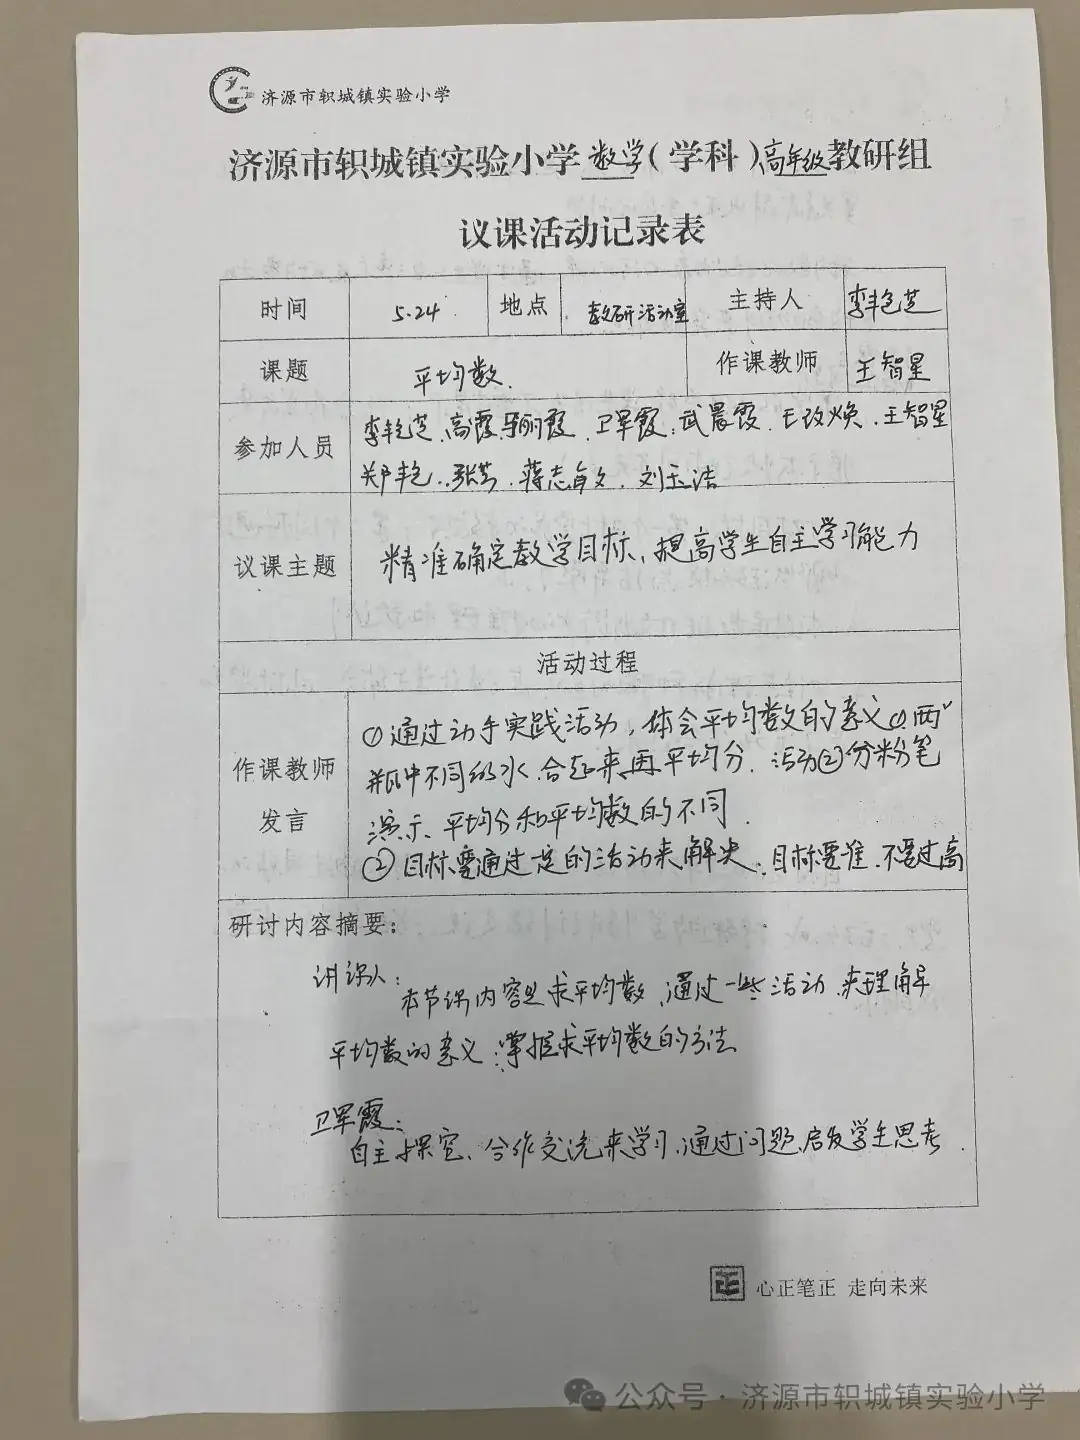 济源市轵城镇实验小学
济源市轵城镇实验小学数学(学科)高年级教研组
议课活动记录表
时间 5.24 地点 教研活动室 主持人 李艳芝
课题 平均数. 作课教师 王智星
参加人员
李艳芝、高霞、丽霞、卫军霞、武晨霞、王改焕、王智星
郑艳、张芳、蒋志自文、刘玉洁
议课主题 精准确定教学目标、提高学生自主学习能力
活动过程
作课教师
发言
①通过动手实践活动,体会平均数的意义①两
瓶中不同的水、合起来再平均分、活动②分粉笔
演示、平均分和平均数的不同.
②目标要通过一定的活动来解决、目标要准、不要过高
研讨内容摘要:
讲课人:
本节课内容是求平均数、通过一些活动、来理解
平均数的意义、掌握求平均数的方法
卫军霞:
自主探究、合作交流来学习、通过问题、启发学生思考.
心正笔正 走向未来
公众号·济源市轵城镇实验小学